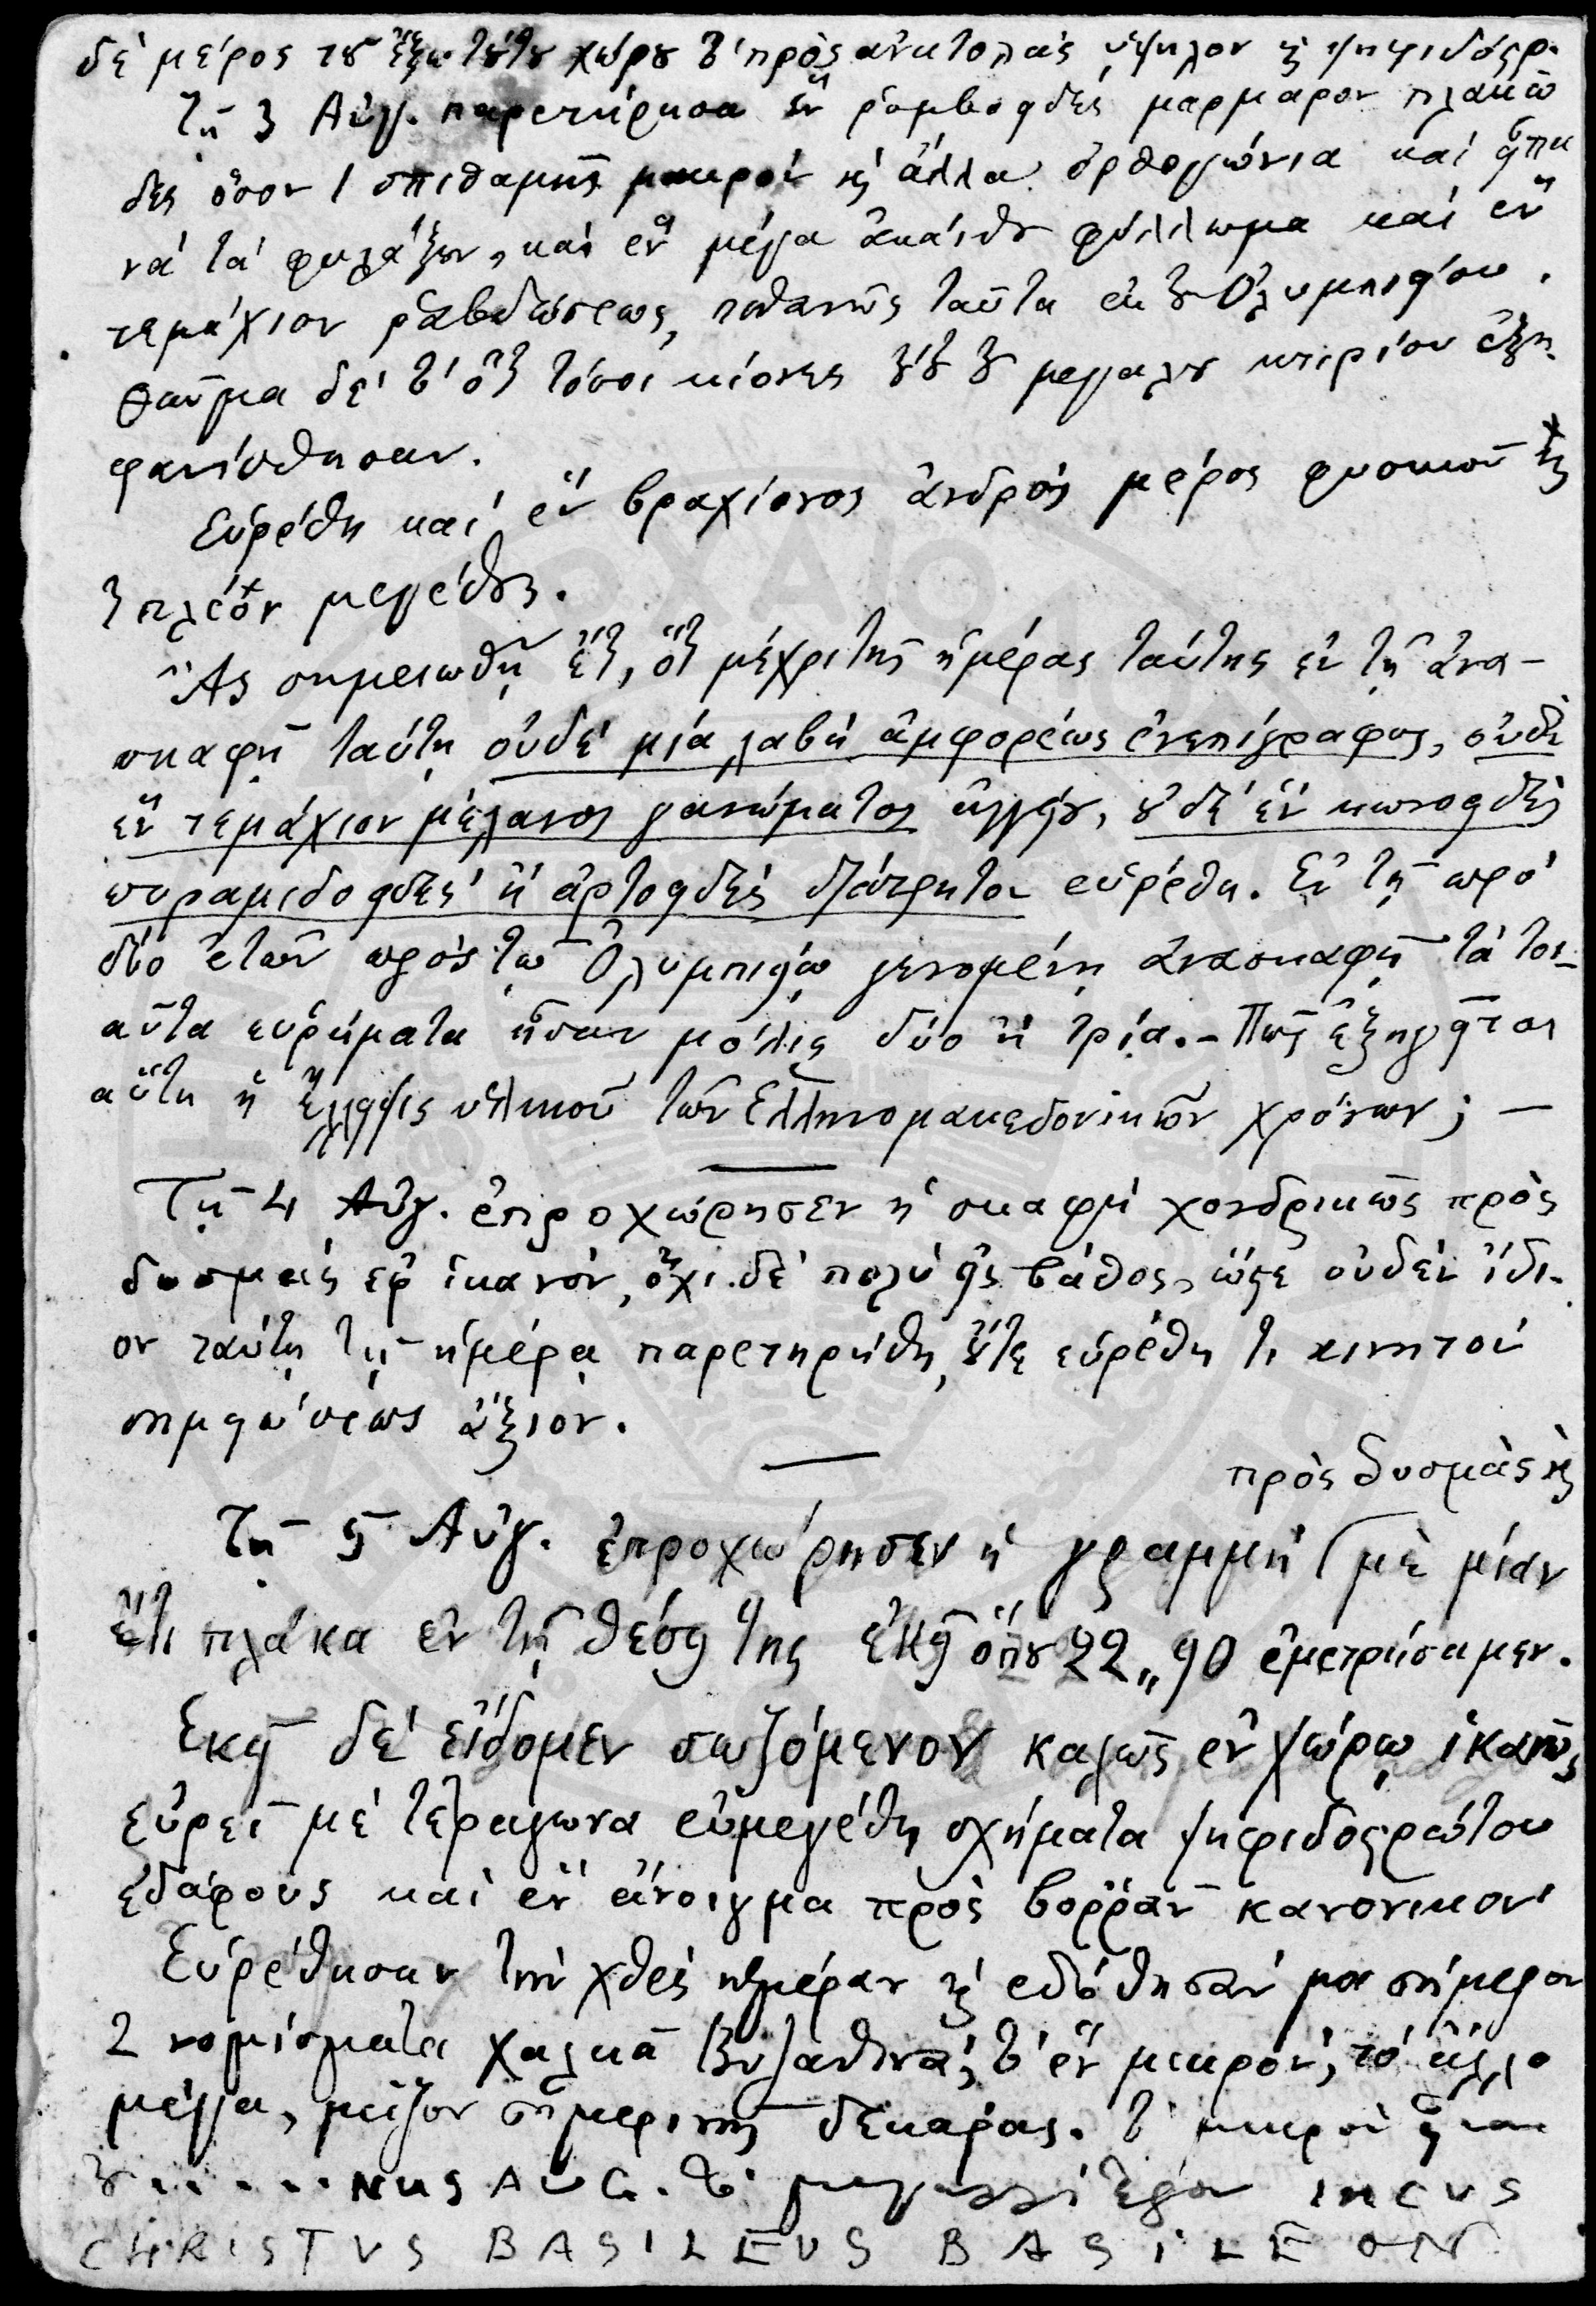 δὲ μέρος τοῦ ἔξω τούτου χώρου τὸ πρὸς ἀνατολὰς ὑψηλὸν κ ψηφιδόστρ.
Τῇ 3 Αὐγ. παρετήρησα ἓν ῥομβοειδὲς μάρμαρον πλακῶ
δες ὅσον 1 σπιθαμῆς μακρὸν κ ἄλλα ὀρθογώνια καὶ εἶπα
νὰ τὰ φυλάξουν, καὶ ἓν μέγα ἀκάνθου φύλλωμα καὶ ἓν
τεμάχιον ῥαβδώσεως, πιθανῶς ταῦτα ἐκ τοῦ Ὀλυμπιείου.
Θαῦμα δὲ τὸ ὅτι τόσοι κίονες τούτου τοῦ μεγάλου κτιρίου ἐξη
φανίσθησαν.
Εὑρέθη καὶ ἓν βραχίονος ἀνδρὸς μέρος φυσικοῦ κ
πλέον μεγέθους.
Ἂς σημειωθῇ ἔτι, ὅτι μέχρι τῆς ἡμέρας ταύτης ἐν τῇ ἀνα-
σκαφῇ ταύτῃ οὐδὲ μία λαβὴ ἀμφορέως ἐνεπίγραφος, οὐδὲ
ἓν τεμάχιον μέλανος γανώματος ἀγγείου, οὐδὲ ἓν κωνοειδὲς
πυραμιδοειδὲς ἢ ἀρτοειδὲς διάτρητον εὑρέθη. Ἐν τῇ πρὸ
δύο ἐτῶν πρὸς τῷ Ὀλυμπιείῳ γενομένῃ ἀνασκαφῇ τὰ τοι-
αῦτα εὑρήματα ἦσαν μόλις δύο ἢ τρία.- Πῶς ἐξηγεῖται
αὕτη ἡ ἔλλειψις ὑλικοῦ τῶν Ἑλληνομακεδονικῶν χρόνων; —
Τῇ 4 Αὐγ. ἐπροχώρησεν ἡ σκαφὴ χονδρικῶς πρὸς
δυσμὰς ἐφ ἱκανόν, ὄχι δὲ πολὺ εἰς βάθος, ὥστε οὐδὲν ἴδι-
ον ταύτῃ τῇ ἡμέρᾳ παρετηρήθη, οὔτε εὑρέθη τι κινητὸν
σημειώσεως ἄξιον.
πρὸς δυσμὰς κ
Τῇ 5 Αὐγ. ἐπροχώρησεν ἡ γραμμὴ μὲ μίαν
ἔτι πλάκα ἐν τῇ θέσει της ἐκεῖ ὅπου 22,,90 ἐμετρήσαμεν.
Ἐκεῖ δὲ εἴδομεν σωζόμενον καλῶς ἐν χώρῳ ἱκανῶς
εὐρεῖ μὲ τετράγωνα εὐμεγέθη σχήματα ψηφιδοστρώτου
ἐδάφους καὶ ἓν ἄνοιγμα πρὸς βορρᾶν κανονικὸν
Εὑρέθησαν τὴν χθὲς ἡμέραν κ ἐδόθησάν μοι σήμερον
2 νομίσματα χαλκᾶ βυζαντινά, τὸ ἓν μικρόν, τὸ ἄλλο
μέγα, μεῖζον σημερινῆς δεκάρας. τὸ μικρὸν
τοῦ ..... NUS AUG. τὸ IHCVS
CHRISTVS BASILEUS BASILEON